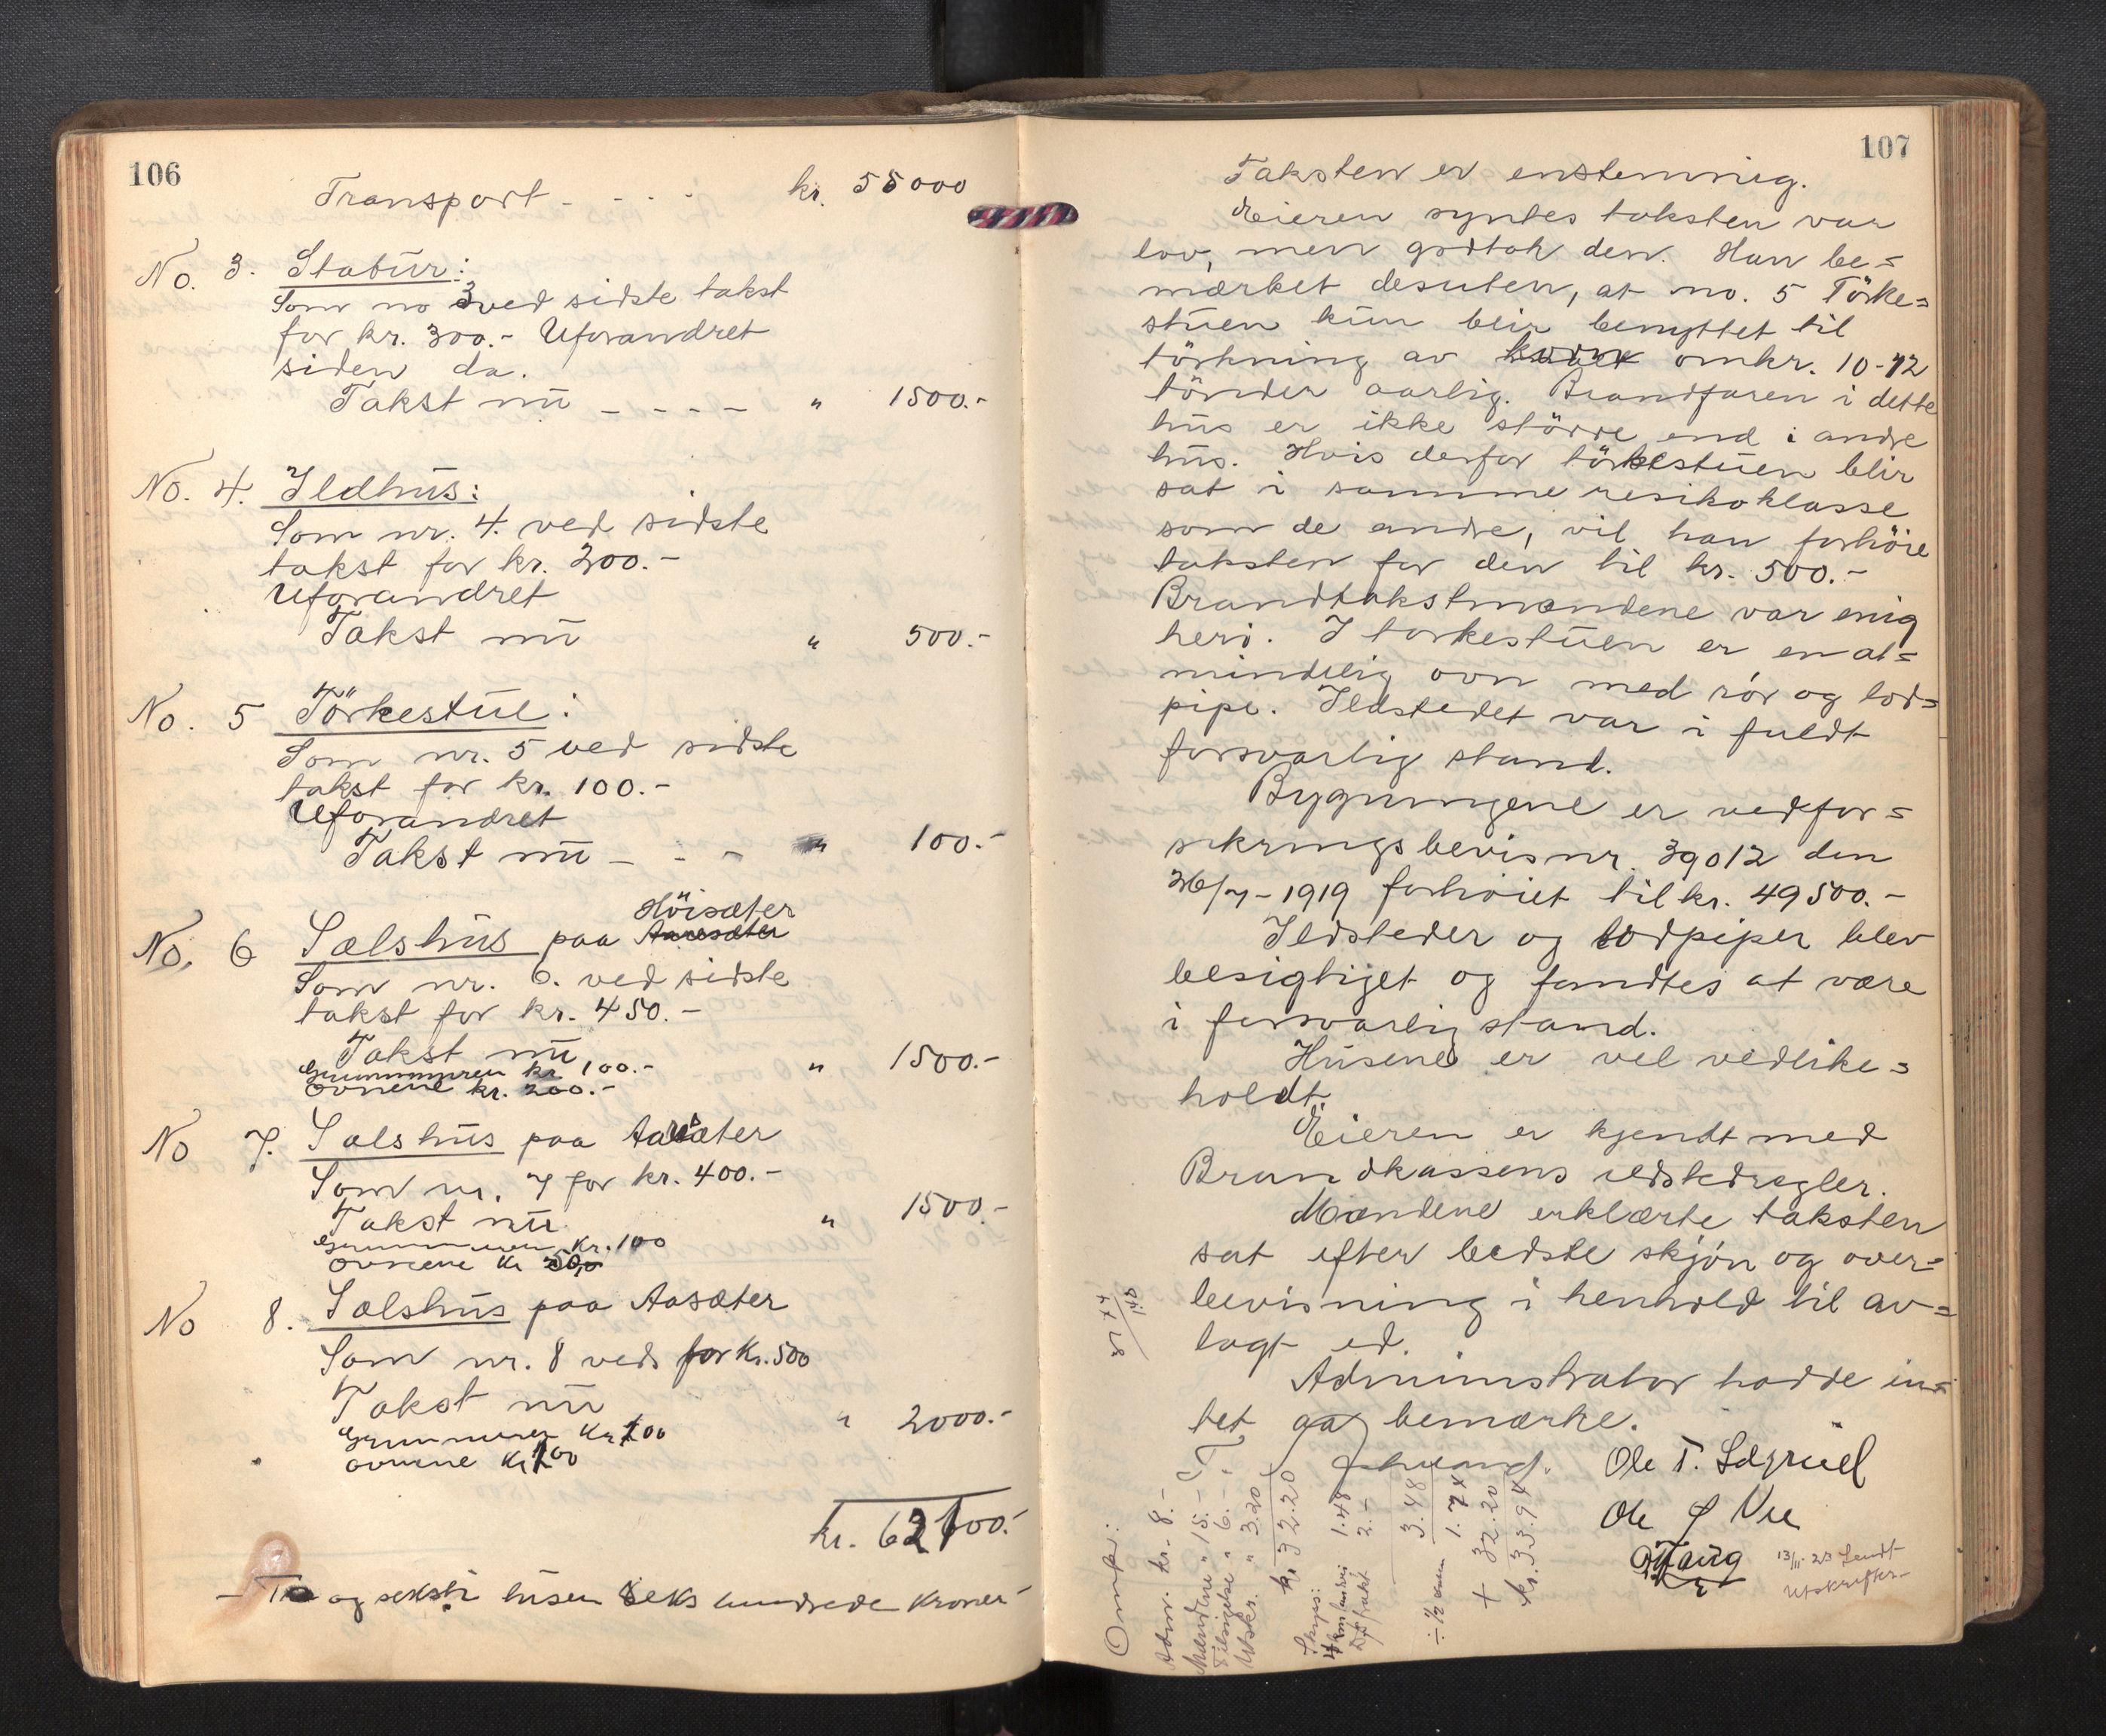 106
Transport - - - - kr. 55000
No. 3. Stabur:
Som no 3 ved sidste takst
for kr. 300.- Uforandret
siden da.
Takst nu - - - - " 1500.-
No. 4. Ildhus:
Som nr. 4. ved sidste
takst for kr. 200.-
Uforandret
Takst nu " 500.-
No. 5 Törkestue:
Som nr. 5 ved sidste
takst for kr. 100.-
Uforandret
Takst nu - - - " 100.-
Höisæter
No. 6 Sælshus paa
Som nr. 6. ved sidste
takst for kr. 450.-
Takst nu " 1500.-
Grunnmuren kr 100.-
Ovnene kr. 200.-
No 7. Sælshus paa Aasæter
Som nr. 7 for kr. 400.-
Takst nu " 1500.-
Grunnmuren Kr. 100
Ovnene Kr
No 8. Sælshus paa Aasæter
Som nr. 8 veds for Kr. 500
Takst nu " 2000.-
Grunnmuren Kr 100
ovnene Kr 100
kr. 62100.-
og seksti tusen seks hundrede Kroner-
107
Taksten er enstemmig.
Eieren syntes taksten var
lav, men godtok den. Han be=
mærket desuten, at no. 5 Törke=
stuen kun blir benyttet til
törkning av korn omkr. 10-12
tönder aarlig. Brandfaren i dette
hus er ikke större end i andre
hus. Hvis derfor törkestuen blir
sat i samme resikoklasse
som de andre, vil han forhöie
taksten for den til kr. 500.-
Brandtakstmændene var enig
heri. I torkestuen er en al=
mindelig ovn med rör og lod=
pipe. Ildstedet var i fuldt
forsvarlig stand.
Bygningene er ved for=
sikringsbevis nr. 39012 den
26/7-1919 forhöiet til kr. 49500.-
Ildsteder og lodpiper blev
besigtiget og fandtes at være
i forsvarlig stand.
Husene er vel vedlike=
holdt.
Eieren er kjendt med
Brandkassens ildstedregler.
Mændene erklærte taksten
sat efter bedste skjön og over=
bevisning i henhold til av=
lagt ed.
Administrator hadde in=
tet at bemærke.
Ole T. Lægreid
Ole J Vee
Haug
13/11-23 Sendt
Utskrifter
Omk:
Adm. kr. 8.-
Mændene " 15.-
" 6.-
Utskr. " 3.20
kr. 32.20
1.48
2.-
3.48
÷ 1/2 1.74
+ 32.20
kr. 33.94